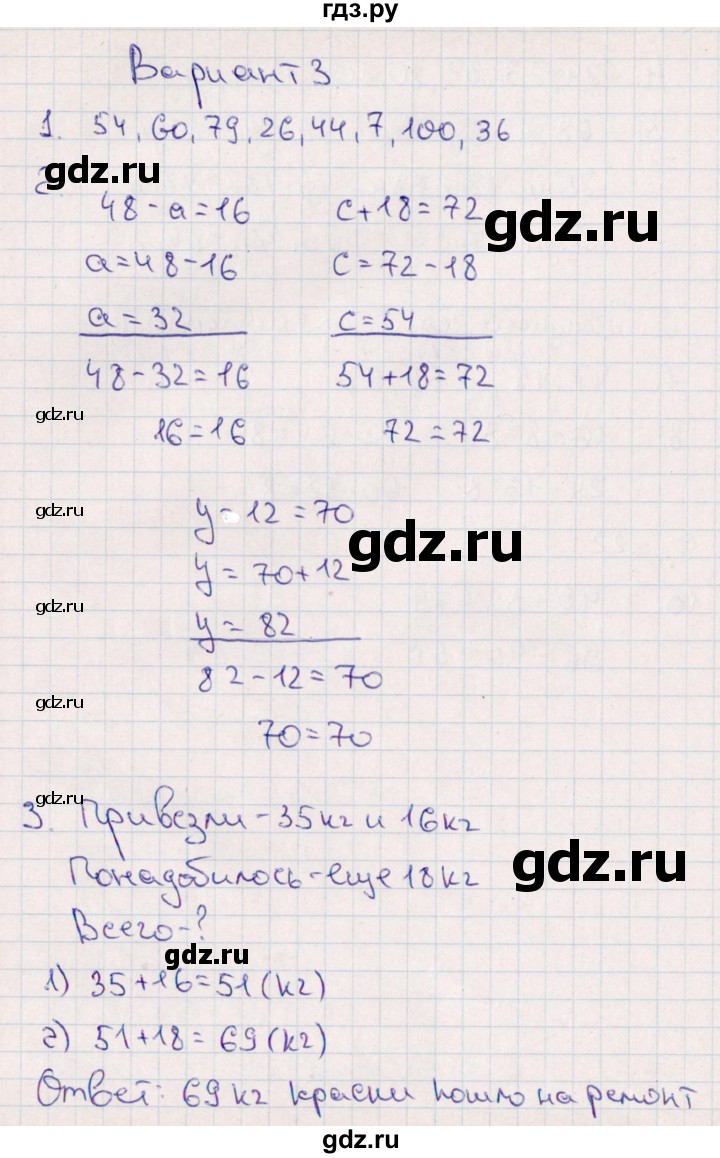 гдз.ру
Вариант 3
1. 54, 60, 79, 26, 44, 7, 100, 36
gdz.ru
2.
48 - a = 16 c + 18 = 72
gdz.ru
a = 48 - 16 c = 72 - 18
a = 32 c = 54
48 - 32 = 16 54 + 18 = 72
gdz.ru
16 = 16 72 = 72
gdz.ru
y - 12 = 70
gdz.ru
y = 70 + 12
gdz.ru
y = 82
82 - 12 = 70
gdz.ru
70 = 70
gdz.ru
3. Привезли - 35 кг и 16 кг
gdz.ru
Понадобилось - еще 18 кг
Всего - ?
gdz.ru
1) 35 + 16 = 51 (кг)
2) 51 + 18 = 69 (кг)
Ответ: 69 кг краски пошло на ремонт
gdz.ru